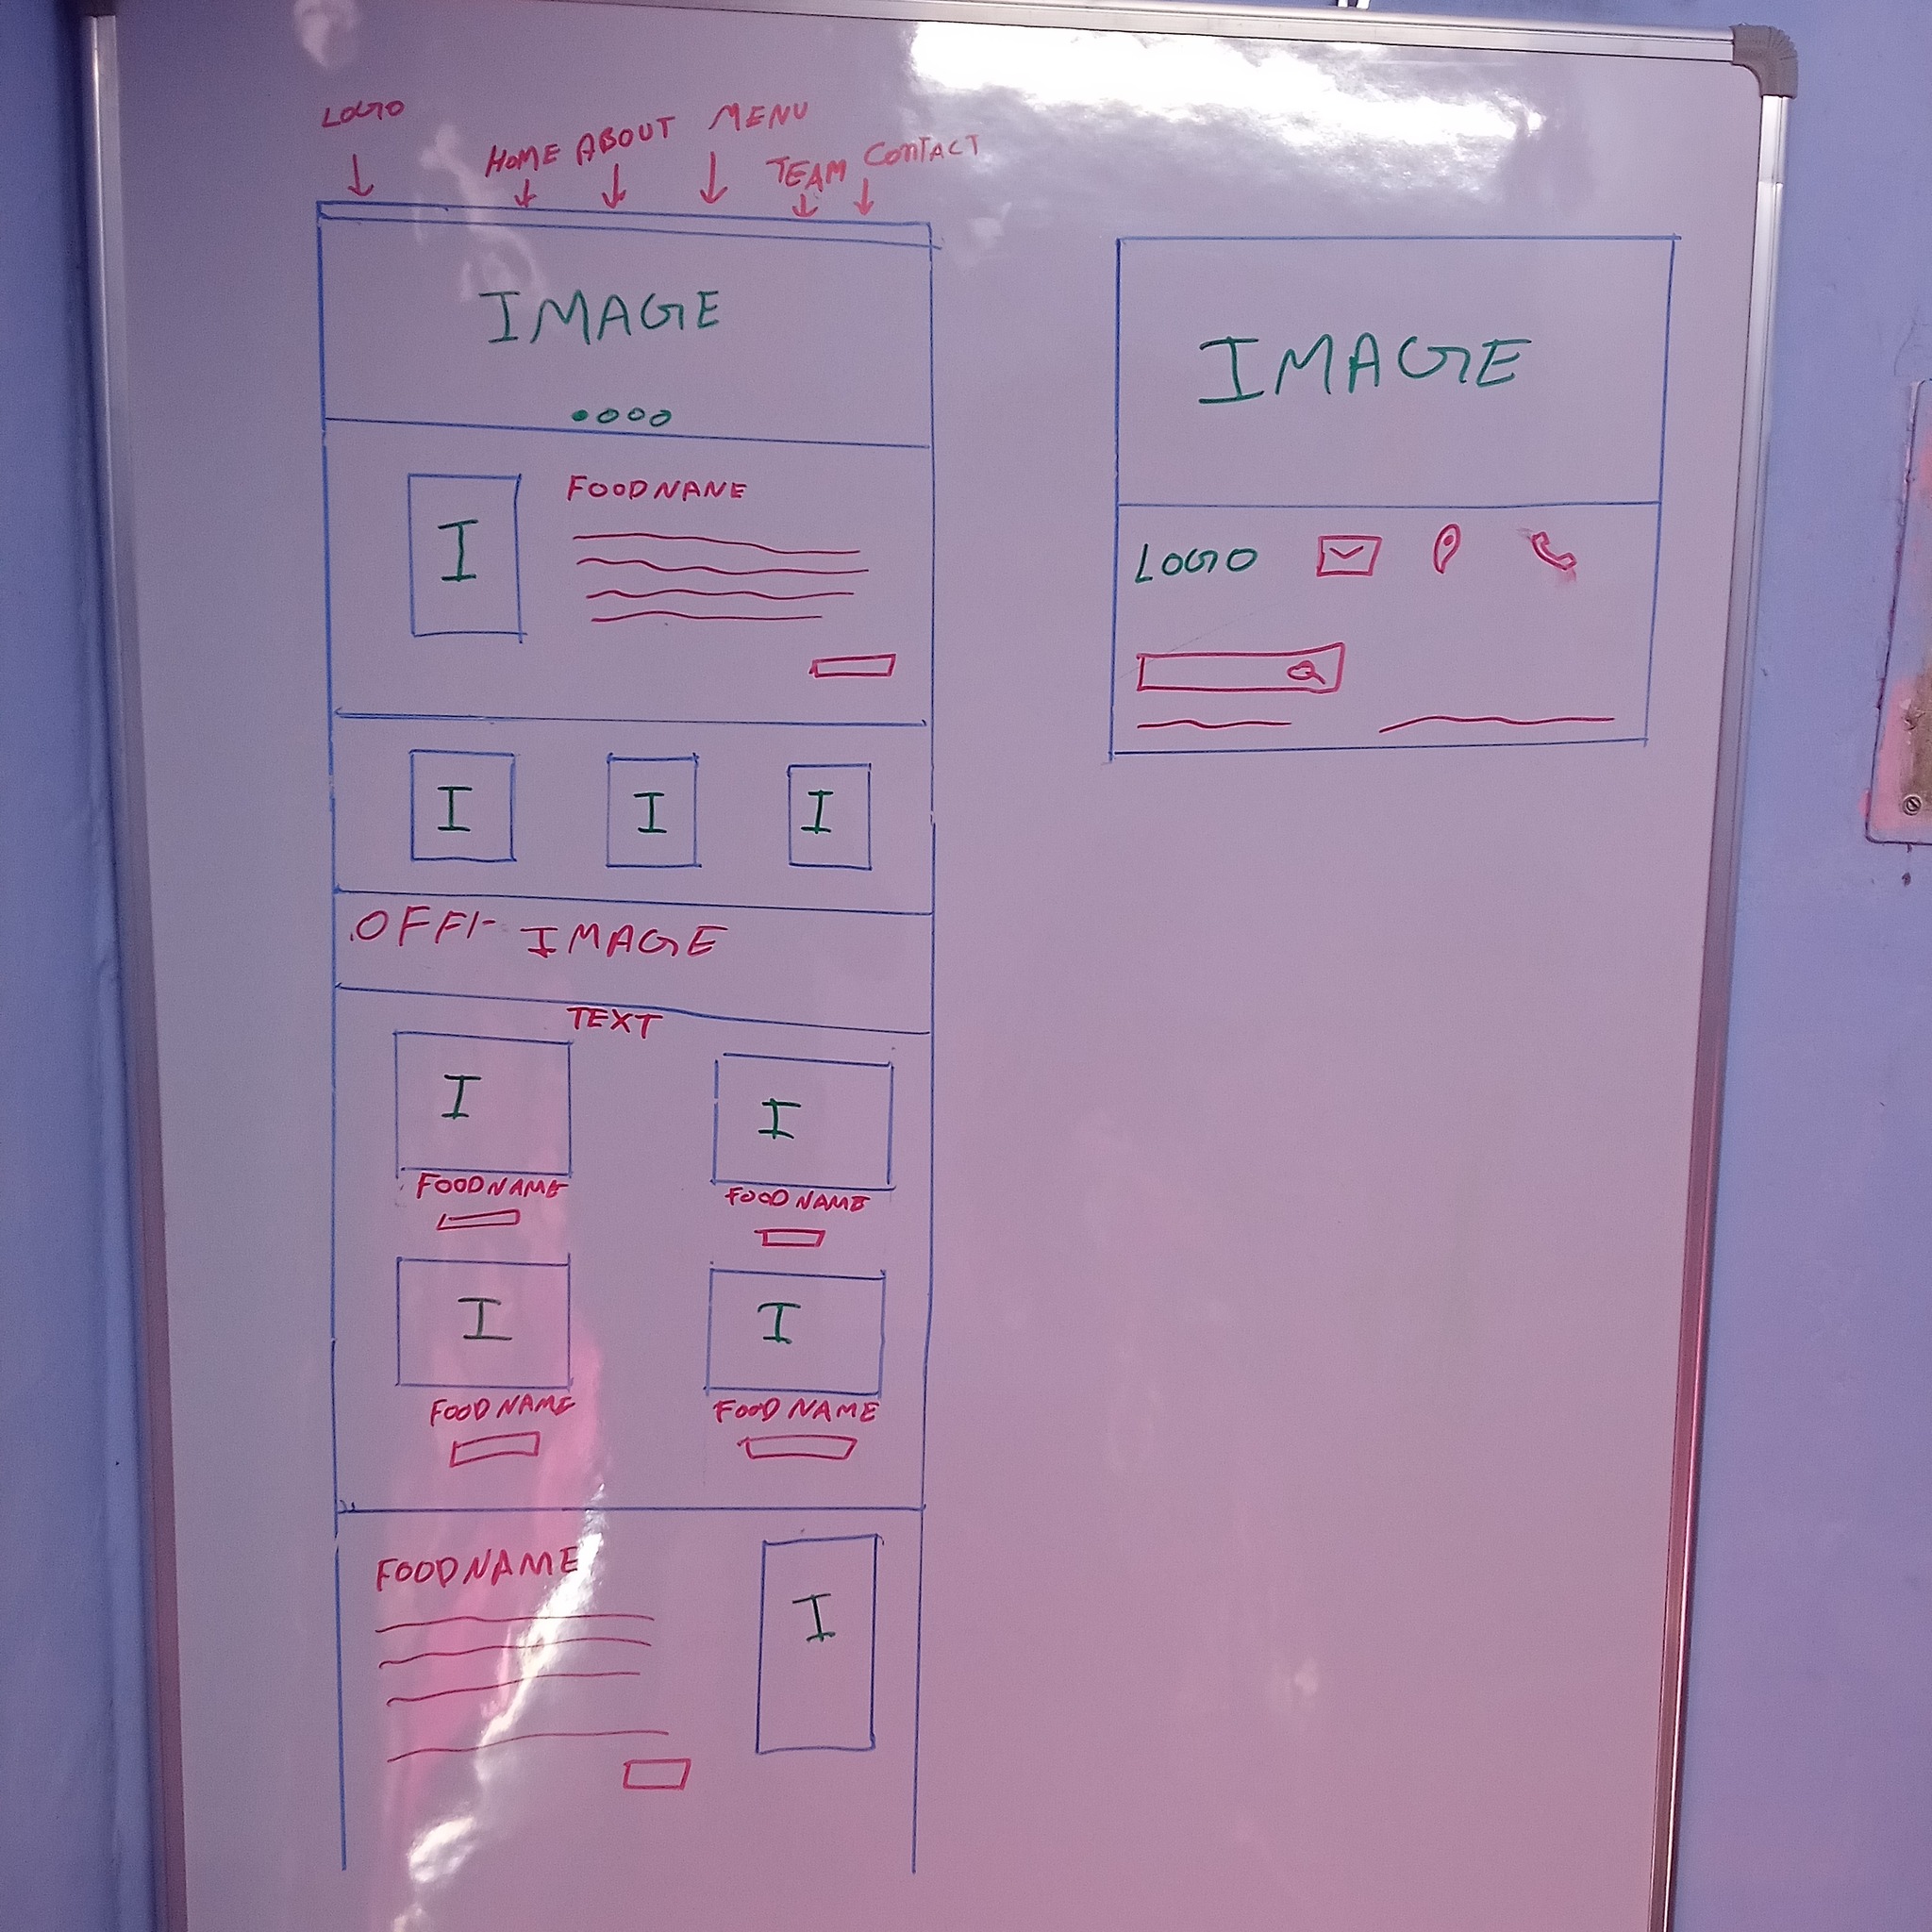 LOGO
HOME ABOUT MENU
TEAM CONTACT
IMAGE
FOODNANE
I
I I I
IMAGE
TEXT
I I
FOODNAME FOOD NAME
I I
FOOD NAME FOOD NAME
FOODNAME
I
IMAGE
LOGO